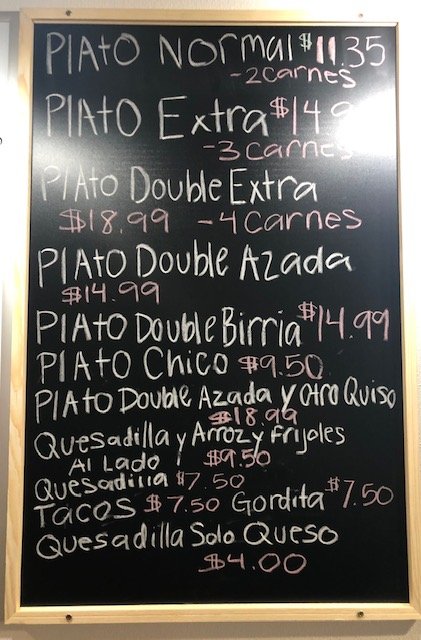 Plato Normal $11.35
-2 carnes
Plato Extra $14.9
-3 carnes
Plato Double Extra
$18.99 -4 carnes
Plato Double Azada
$14.99
Plato Double Birria $14.99
Plato Chico $9.50
Plato Double Azada y otro Quiso
$18.99
Quesadilla y Arroz y frijoles
Al Lado $9.50
Quesadilla $7.50
Tacos $7.50 Gordita $7.50
Quesadilla Solo Queso
$4.00